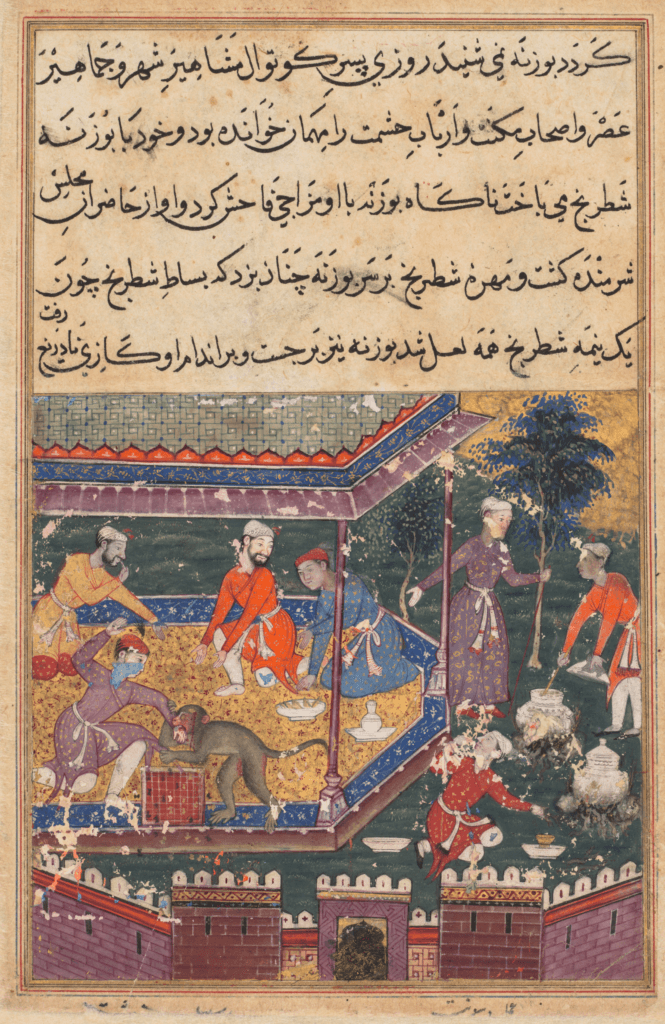 کردد بوزنه نمی شنید روزی پسر کوتوال مشاهیر شهر و جماهیر
عصر و اصحاب مکنت و ارباب حشمت را مهمان خوانده بود و خود با بوزنه
شطرنج می باخت ناکاه بوزنه با او مزاجی فاحش کرد و او از حاضران مجلس
شرمنده کشت و مهرهٔ شطرنج بر سر بوزنه چنان بزد که بساط شطرنج چون
یک نیمه شطرنج همه لعل شد بوزنه نیز برجست و بر اندام او کازی رفت